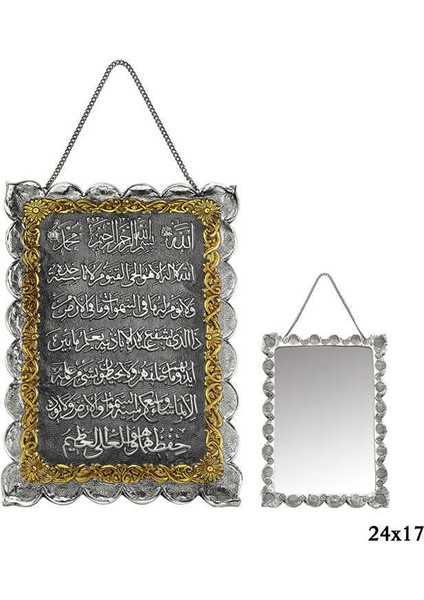 الله بسم الله الرحمن الرحيم محمد
الله لا إله إلا هو الحي القيوم لا تأخذه سنة
ولا نوم له ما في السموات وما في الأرض من
ذا الذي يشفع عنده إلا بإذنه يعلم ما بين
أيديهم وما خلفهم ولا يحيطون بشيء من علمه
إلا بما شاء وسع كرسيه السموات والأرض ولا يؤده
حفظهما وهو العلي العظيم
24x17